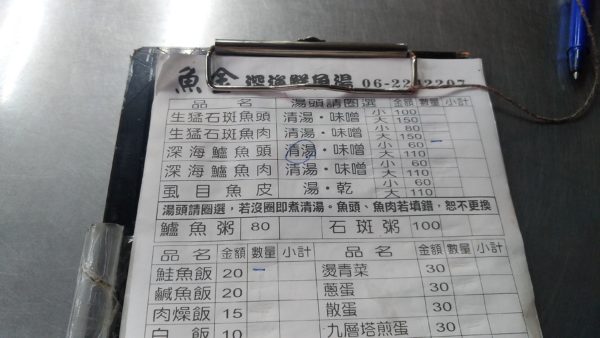 魚舍 深海鮮魚湯 06-2282207
品名 湯頭請圈選 金額 數量 小計
生猛石斑魚頭 清湯・味噌 小 100 大 150
生猛石斑魚肉 清湯・味噌 小 80 大 150
深海鱸魚頭 清湯・味噌 小 60 大 110 一
深海鱸魚肉 清湯・味噌 小 60 大 110
虱目魚皮 湯・乾 小 60 大 110
湯頭請圈選,若沒圈即煮清湯。魚頭、魚肉若填錯,恕不更換
鱸魚粥 80 石斑粥 100
品名 金額 數量 小計 品名 金額 數量 小計
鮭魚飯 20 一 燙青菜 30
鹹魚飯 20 蔥蛋 30
肉燥飯 15 散蛋 30
白飯 10 九層塔煎蛋 30